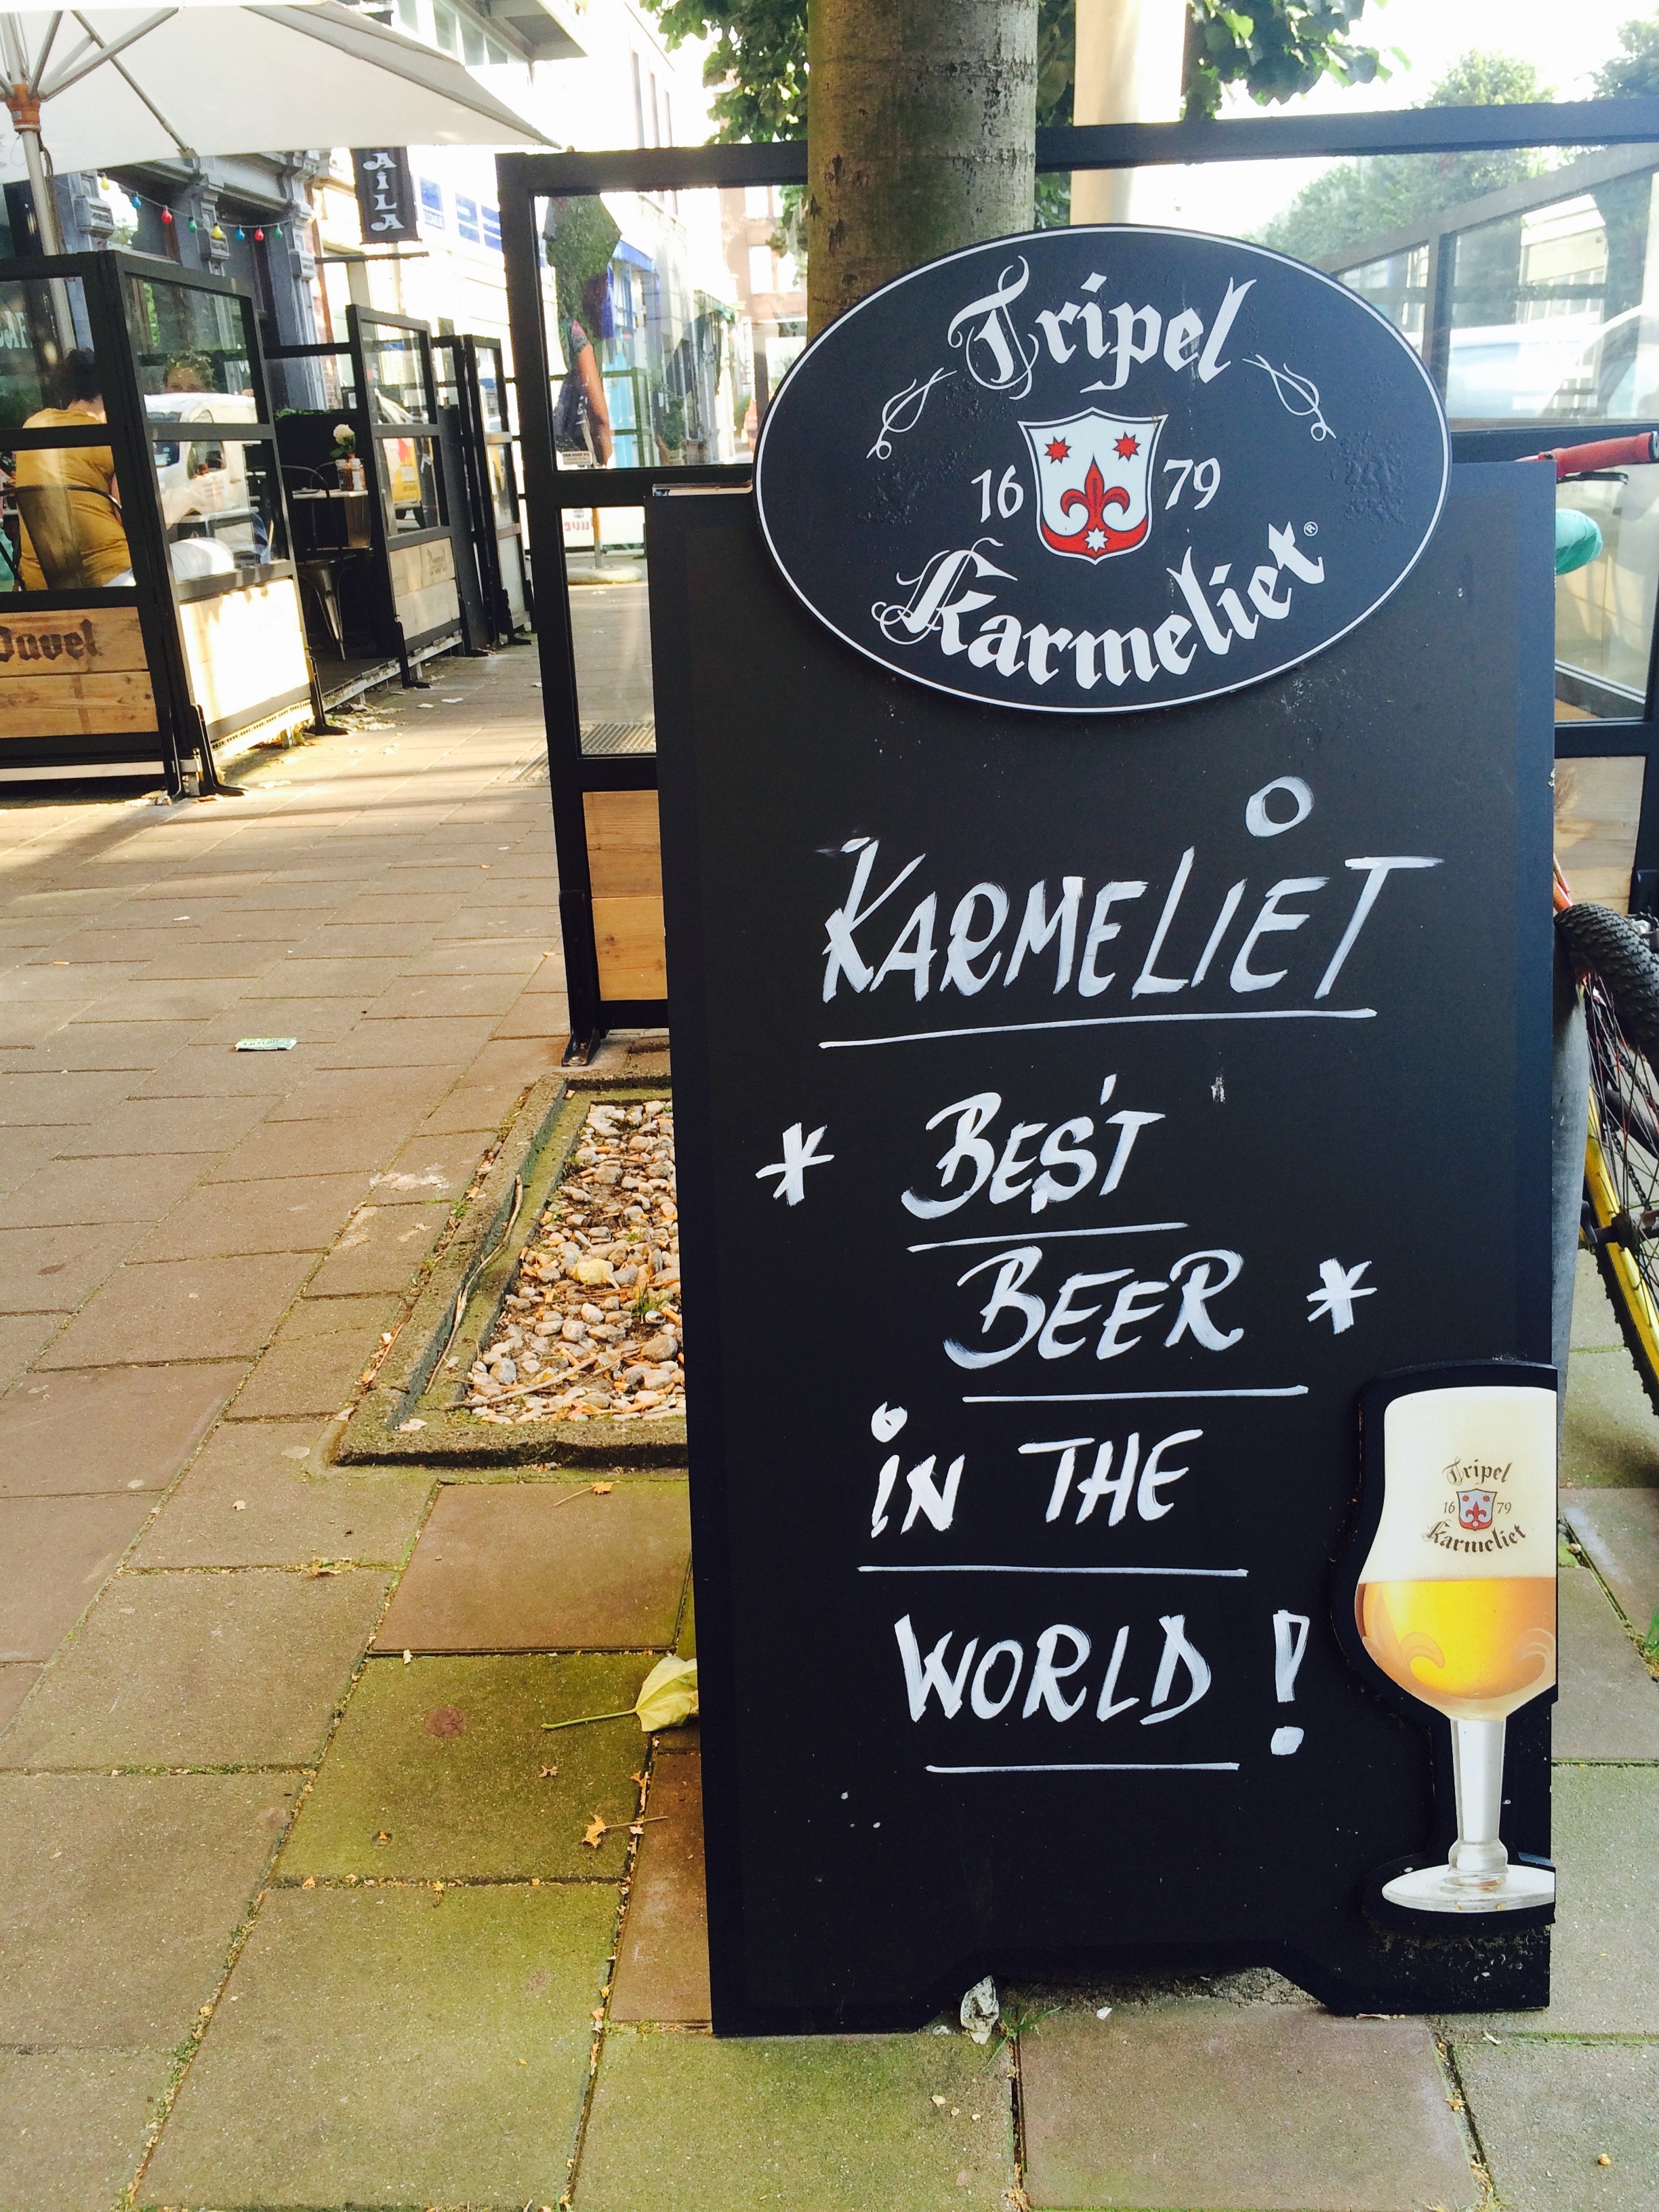 AiLA
Tripel
16 79
Karmeliet®
Duvel
Duvel
KARMELIET
* BEST
BEER *
iN THE
WORLD!
Tripel
16 79
Karmeliet